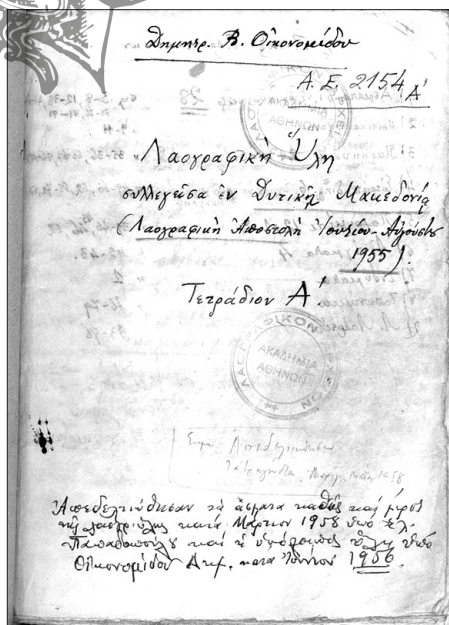 Δημητρ. Β. Οἰκονομίδου
Α.Ε. 2154 Α'
Λαογραφικὴ Ὕλη
συλλεγεῖσα ἐν Δυτικῇ Μακεδονίᾳ
(Λαογραφικὴ Ἀποστολὴ Ἰουλίου - Αὐγούστου
1955)
Τετράδιον Α'.
ΛΑΟΓΡΑΦΙΚΟΝ
ΑΚΑΔΗΜΙΑ
ΑΘΗΝΩΝ
Ἀπεδελτιώθησαν τὰ ᾄσματα καθὼς καὶ μέρος
τῆς λαογρ. ὕλης κατὰ Μάρτιον 1958 ὑπὸ Ἑλ.
Παπαδοπούλου καὶ ἡ ὑπόλοιπος ὕλη ὑπὸ
Οἰκονομίδου Δημ. κατὰ Ἰούνιον 1956.